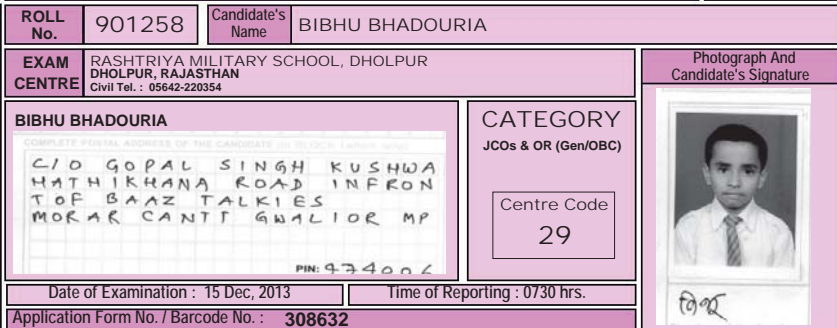 ROLL No. 901258 Candidate's Name BIBHU BHADOURIA
EXAM CENTRE
RASHTRIYA MILITARY SCHOOL, DHOLPUR
DHOLPUR, RAJASTHAN
Civil Tel. : 05642-220354
Photograph And
Candidate's Signature
BIBHU BHADOURIA
COMPLETE POSTAL ADDRESS OF THE CANDIDATE
C/O GOPAL SINGH KUSHWA
HATHIKHANA ROAD INFRON
T OF BAAZ TALKIES
MORAR CANTT GWALIOR MP
PIN: 474006
CATEGORY
JCOs & OR (Gen/OBC)
Centre Code
29
Date of Examination : 15 Dec, 2013
Time of Reporting : 0730 hrs.
Application Form No. / Barcode No. : 308632